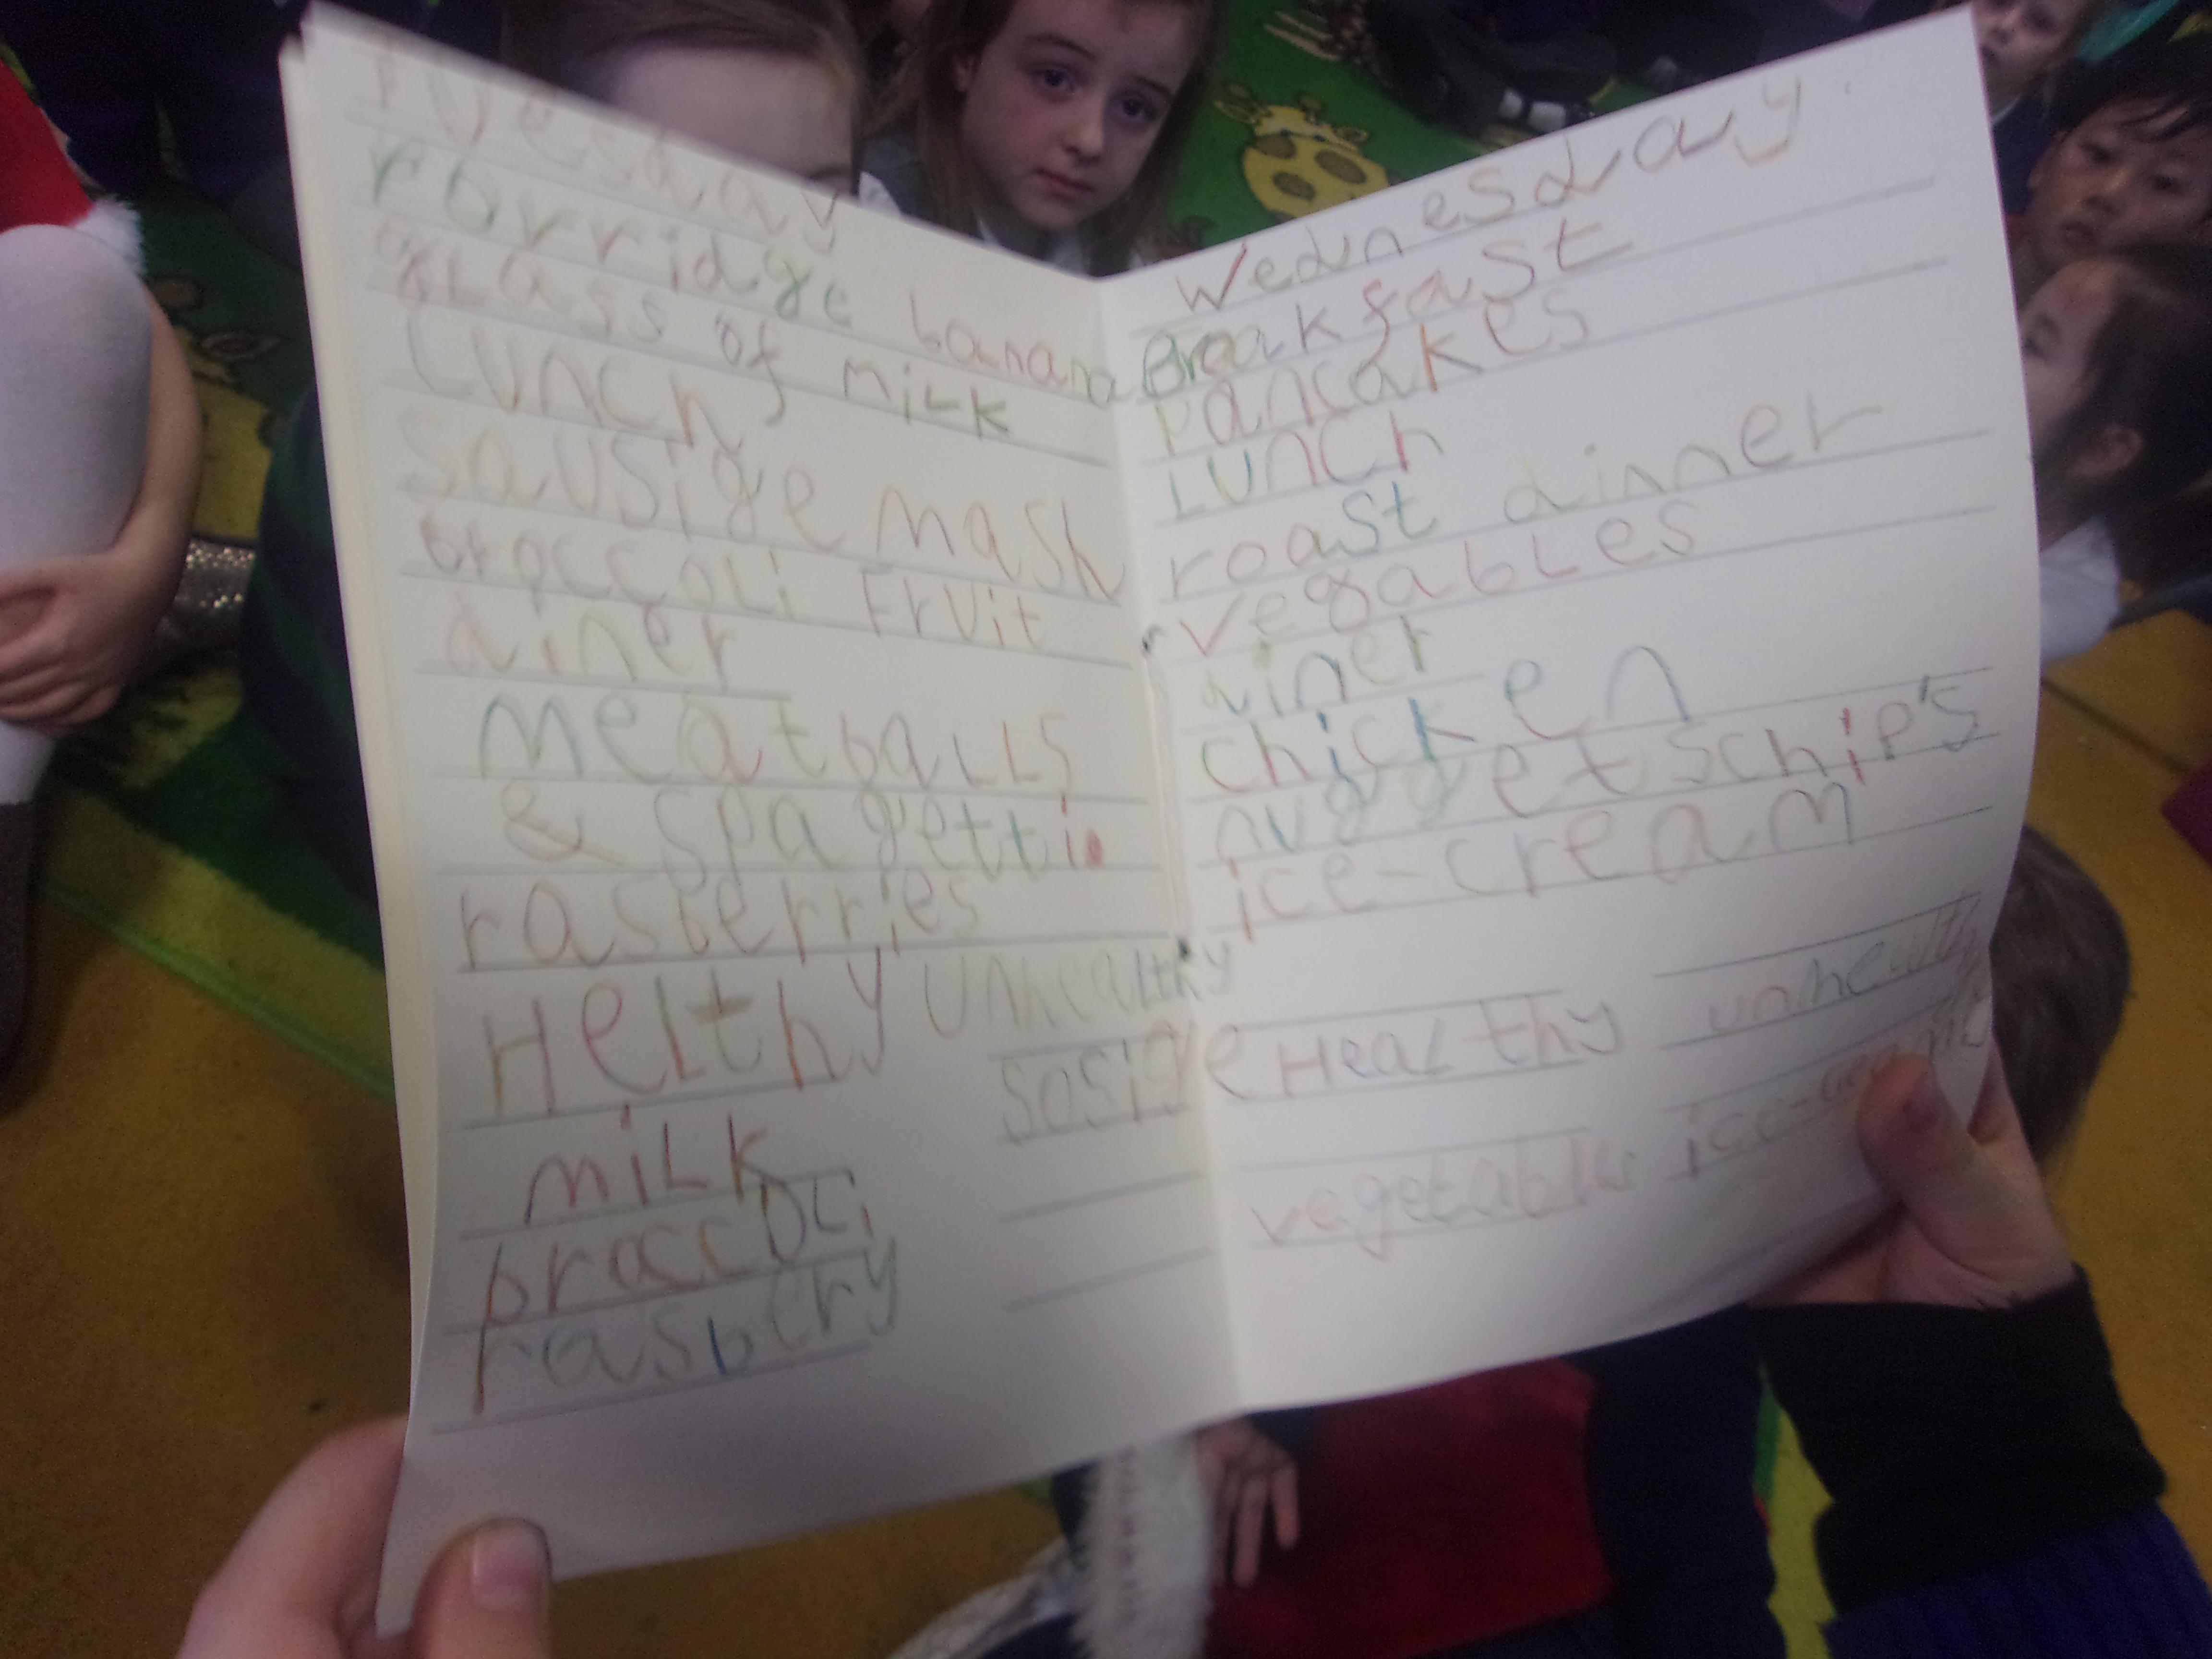 Tuesday
Porridge banana
glass of milk
Lunch
Sausige mash
broccoli Fruit
diner
Meatballs
& Spagetti
rasberries
Helthy Unhealthy
milk sosige
broccoli
rasbery
Wednesday
Breakfast
Pancakes
Lunch
roast dinner
vegables
diner
chicken
nuggets chip's
ice-cream
Healthy unhealthy
vegetable ice-cream